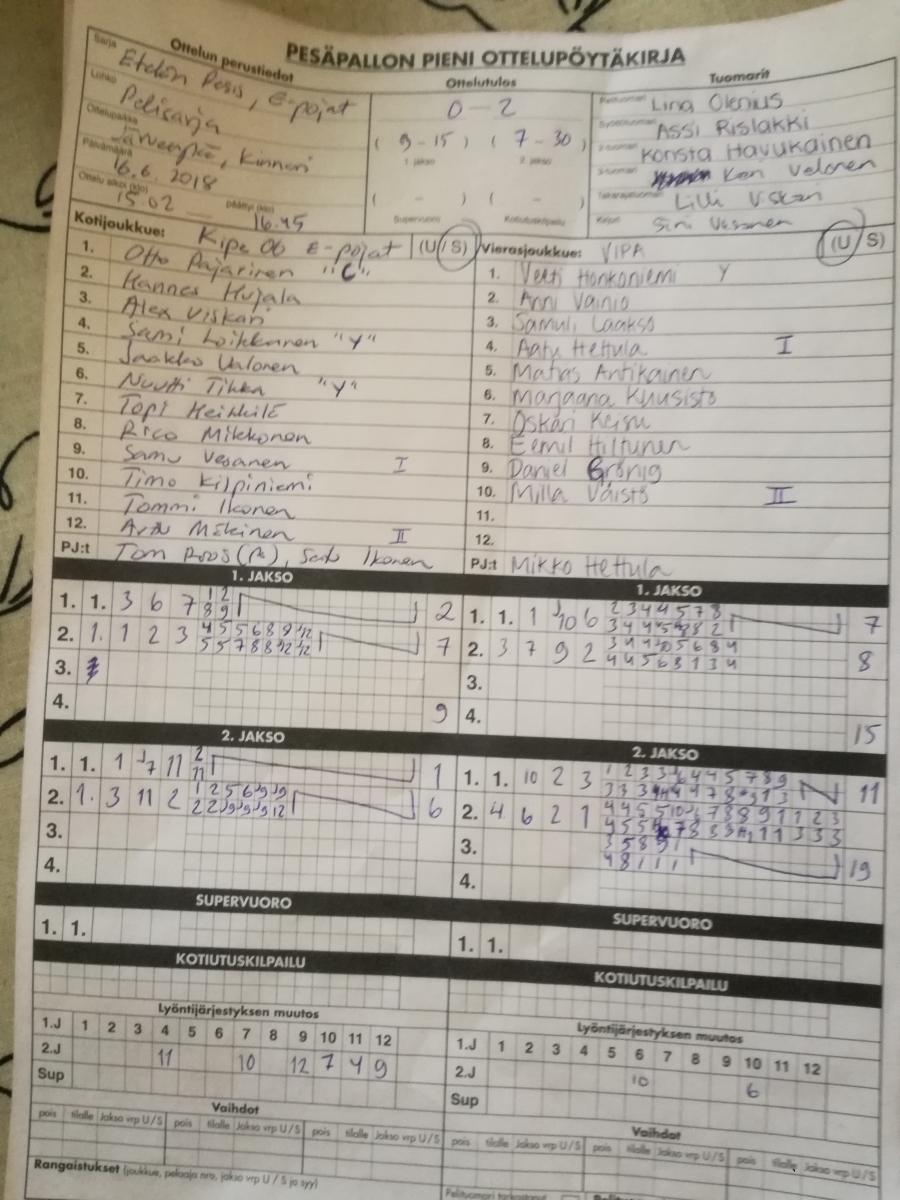 PESÄPALLON PIENI OTTELUPÖYTÄKIRJA
Ottelun perustiedot
Sarja Etelän Pesis, E-pojat
Lohko Pelisarja
Ottelupaikka Järvenpää, Kinnari
Päivämäärä 16.6.2018
Ottelu alkoi (klo) 15.02 päättyi (klo) 16.45
Ottelutulos
0 - 2
( 9 - 15 ) ( 7 - 30 )
1. jakso 2. jakso
( - ) ( - )
Supervuoro Kotiutuskilpailu
Tuomarit
Lina Olenius
Assi Rislakki
Konsta Havukainen
Valonen
Lilli Viskari
Sini Vesanen
Kotijoukkue: Kipe 06 E-pojat (U/S)
1. Otto Pajarinen "C"
2. Hannes Hujala
3. Alex Viskari
4. Sami Loikkanen "Y"
5. Jaakko Valonen
6. Nuutti Tikka "Y"
7. Topi Heikkilä
8. Rico Mikkonen
9. Samu Vesanen I
10. Timo Kilpiniemi
11. Tommi Ikonen
12. Arttu Mäkinen II
PJ:t Tom Roos, Ikonen
Vierasjoukkue: VIPA (U/S)
1. Veeti Honkaniemi Y
2. Anni Vainio
3. Samuli Laakso
4. Aatu Hettula I
5. Matias Antikainen
6. Marjaana Kuusisto
7. Oskari Keisu
8. Eemil Hiltunen
9. Daniel Grönig
10. Milla Väistö II
11.
12.
PJ:t Mikko Hettula
1. JAKSO
1. 1. 3 6 7 1 2 2
8 9
2. 1. 1 2 3 4 5 5 6 8 9 12 7
5 5 7 8 8 12 12
3.
4. 9
1. JAKSO
1. 1. 1 10 6 2 3 4 4 5 7 8 7
2. 3 7 9 2 8
3.
4. 15
2. JAKSO
1. 1. 1 7 11 2 1
11
2. 1. 3 11 2 1 2 5 6 9 9 6
2 2 9 9 9 12
3.
4.
2. JAKSO
1. 1. 10 2 3 11
2. 4 6 2 1
3. 3 5 8 9 1 19
4 8 1 1 1
4.
SUPERVUORO
1. 1.
SUPERVUORO
1. 1.
KOTIUTUSKILPAILU
KOTIUTUSKILPAILU
Lyöntijärjestyksen muutos
1.J 1 2 3 4 5 6 7 8 9 10 11 12
2.J 11 10 12 7 4 9
Sup
Lyöntijärjestyksen muutos
1.J 1 2 3 4 5 6 7 8 9 10 11 12
2.J 10 6
Sup
Vaihdot
pois tilalle Jakso vrp U/S pois tilalle Jakso vrp U/S pois tilalle Jakso vrp U/S
Vaihdot
pois tilalle Jakso vrp U/S pois tilalle Jakso vrp U/S pois tilalle Jakso vrp U/S
Rangaistukset (joukkue, pelaaja nro, jakso vrp U / S ja syy)